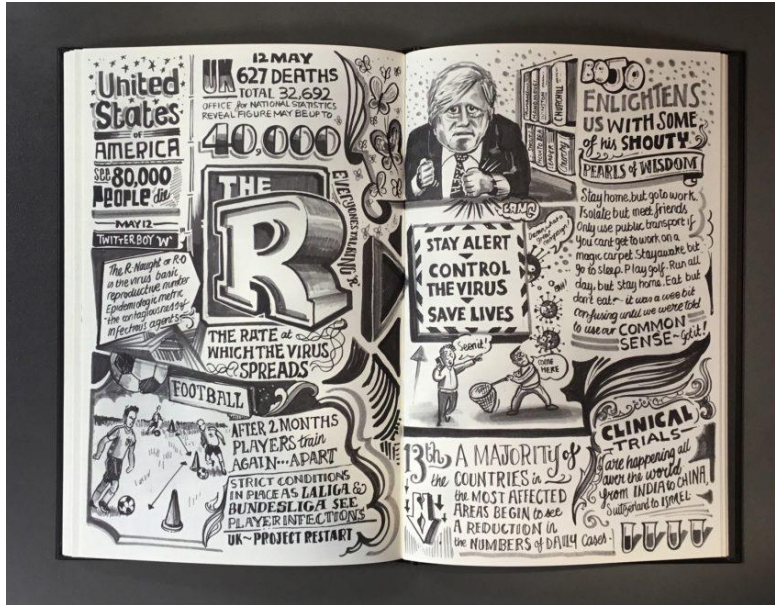 United
States
of
AMERICA
SEE 80,000
PEOPLE die
MAY 12
TWITTERBOY 'W'
The R-Naught or R-0
is the virus basic
reproductive number
Epidemiologic metric
the contagiousness of
infectious agents
12 MAY
UK 627 DEATHS
TOTAL 32,692
OFFICE for NATIONAL STATISTICS
REVEAL FIGURE MAY BE UP TO
40,000
THE
R
EVERYONES TALKING 'R'
THE RATE at
WHICH THE VIRUS
SPREADS
FOOTBALL
AFTER 2 MONTHS
PLAYERS train
AGAIN... APART
STRICT CONDITIONS
IN PLACE AS LALIGA &
BUNDESLIGA SEE
PLAYER INFECTIONS
UK~PROJECT RESTART
CHURCHILL
BOJO
ENLIGHTENS
US WITH SOME
of his SHOUTY
PEARLS of WISDOM
BANG
STAY ALERT
CONTROL
THE VIRUS
SAVE LIVES
Damn, what a
campaign!
Seen it!
COME
HERE
Stay home, but go to work
Isolate but meet friends
Only use public transport if
you cant get to work on a
magic carpet. Stay awake but
go to sleep. Play golf. Run all
day, but stay home. Eat but
don't eat~ it was a wee bit
confusing until we were told
to use our COMMON
SENSE~Got it!
13th
A MAJORITY of
the COUNTRIES in
the MOST AFFECTED
AREAS BEGIN to see
A REDUCTION in
the NUMBERS of DAILY Cases
CLINICAL
TRIALS
are happening all
over the world
from INDIA to CHINA,
Switzerland to ISRAEL